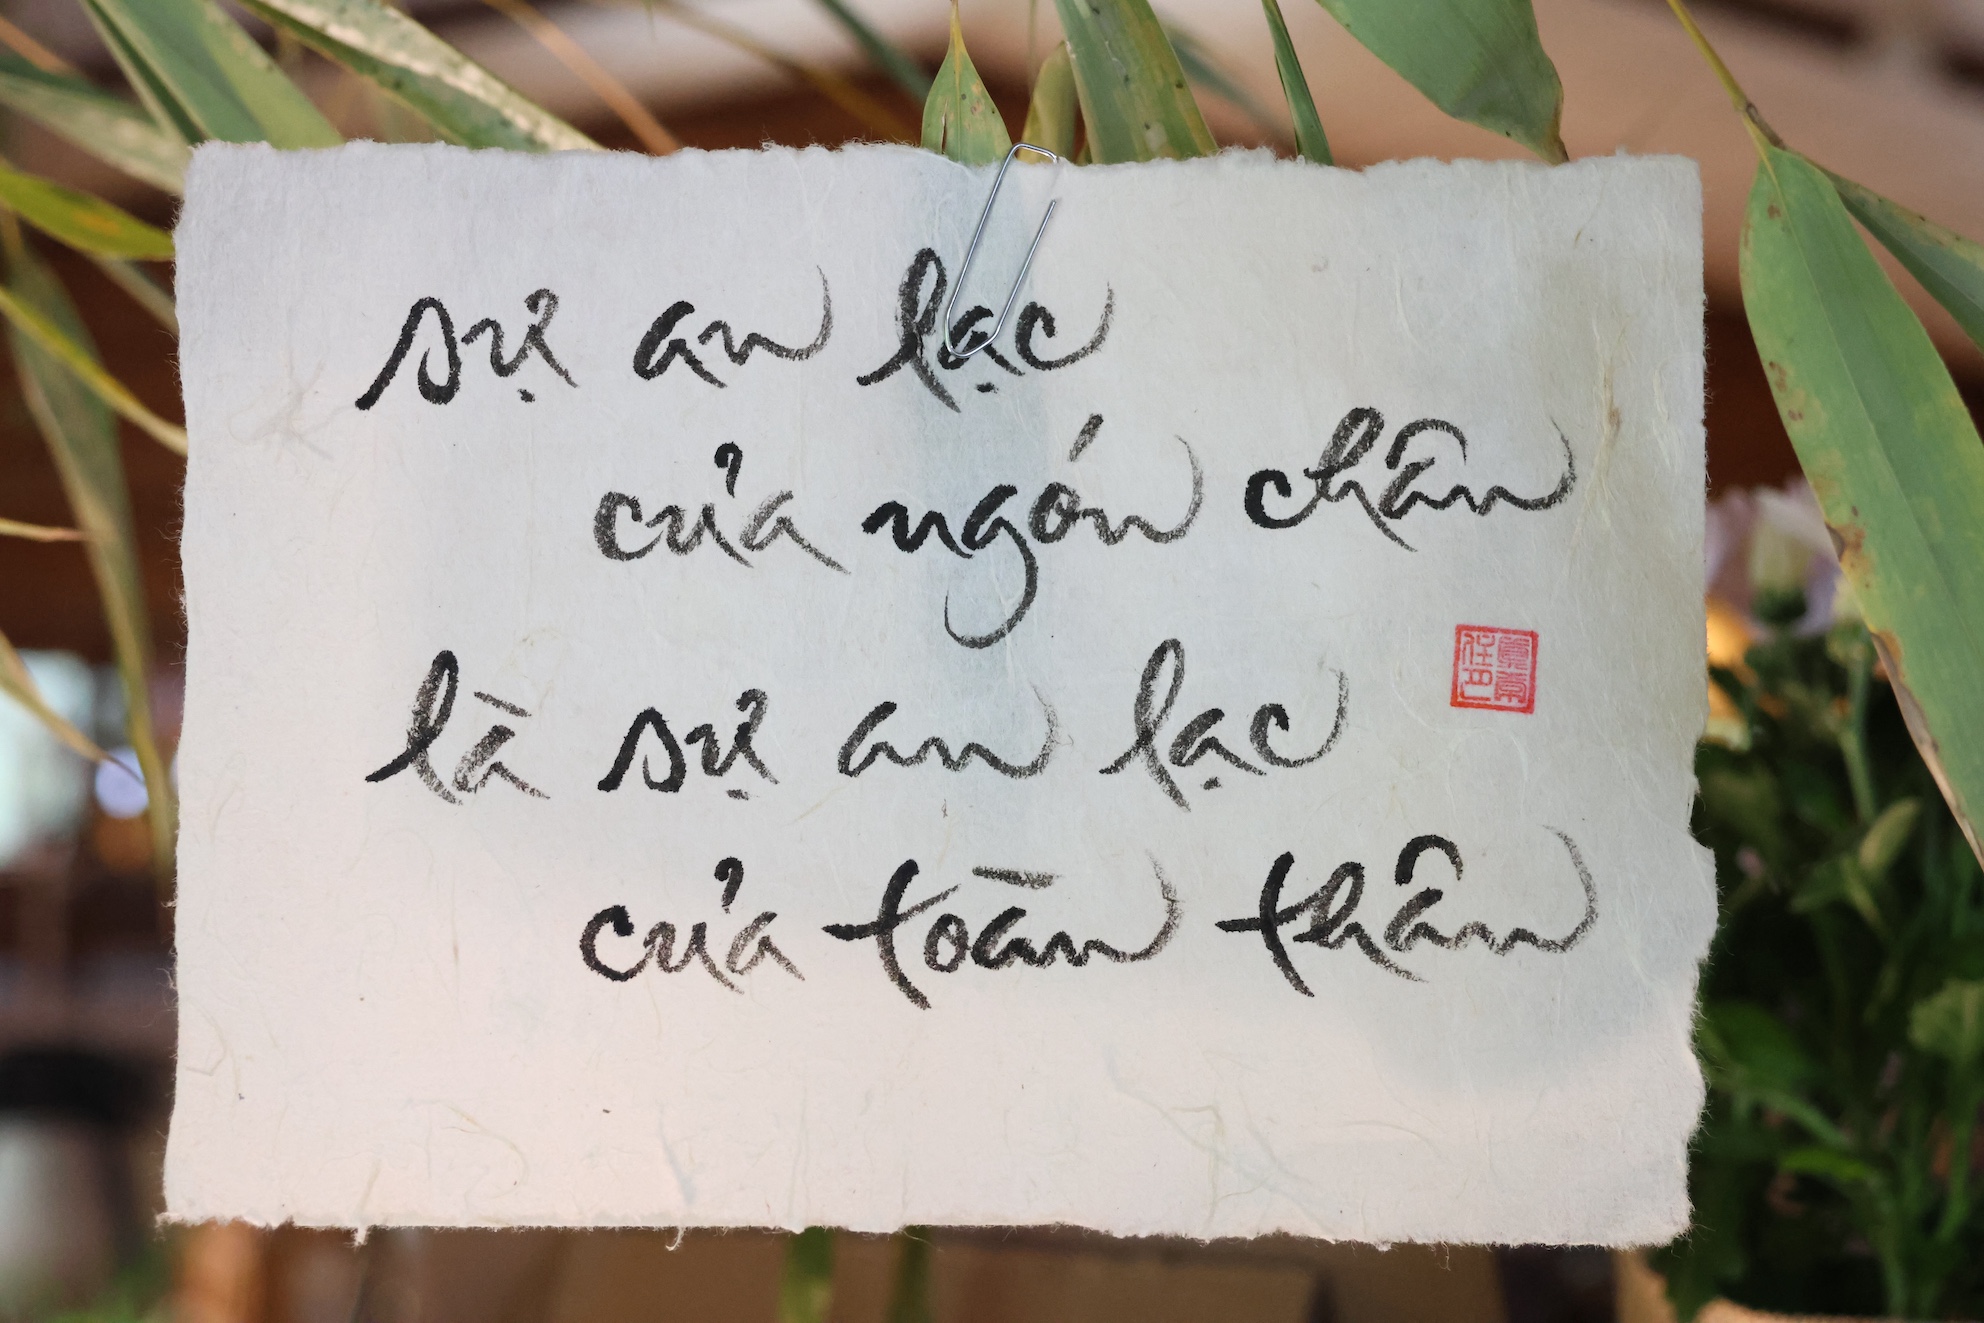 sự an lạc
của ngón chân
là sự an lạc
của toàn thân